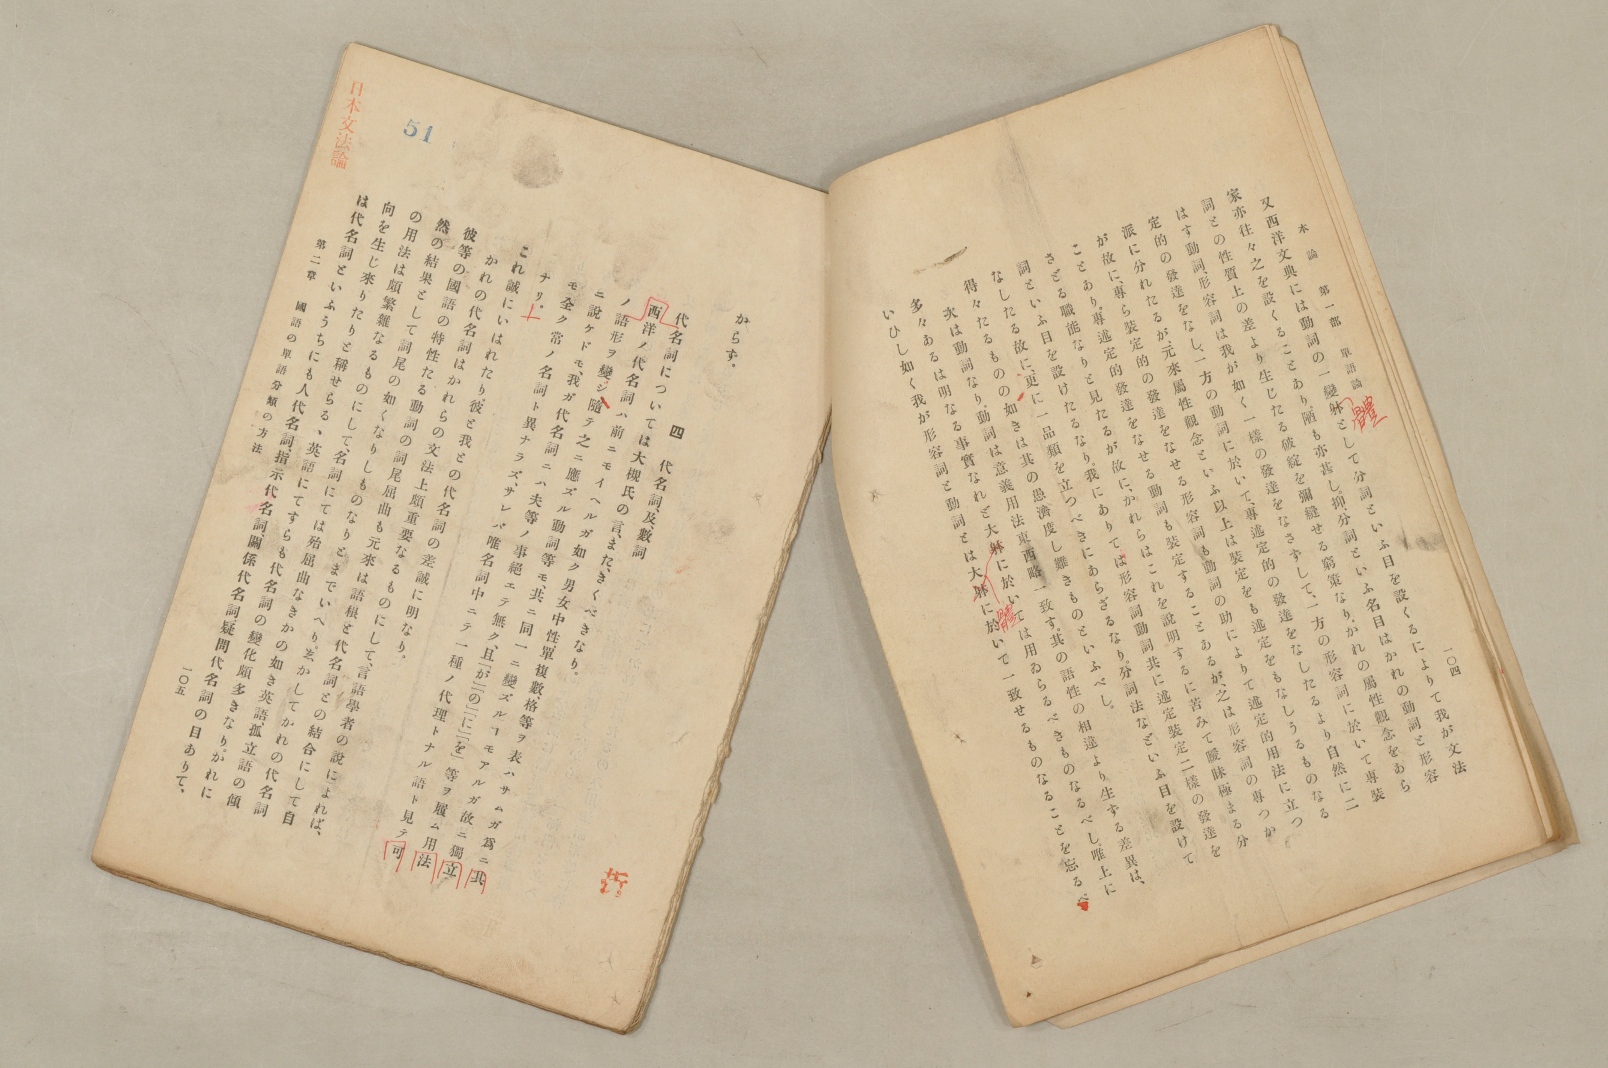 本論　第一部　單語論
一〇四
又西洋文典には動詞の一變躰として分詞といふ目を設くるによりて我が文法
體
家亦往々之を設くることあり、陋も亦甚し。抑、分詞といふ名目はかれの動詞と形容
詞との性質上の差より生じたる破綻を彌縫せる窮策なり。かれの屬性觀念をあら
はす動詞、形容詞は我が如く一樣の發達をなさずして、一方の形容詞に於いて專裝
定的の發達をなし、一方の動詞に於いて專述定的の發達をなしたるより自然に二
派に分れたるが、元來屬性觀念といふ以上は裝定をも述定をもなしうるものなる
が故に、專ら裝定的の發達をなせる形容詞も動詞の助によりて述定的用法に立つ
ことあり、專述定的發達をなせる動詞も裝定することあるが、之は形容詞の專つか
さどる職能なりと見たるが故に、かれらはこれを說明するに苦みて曖昧極まる分
詞といふ目を設けたるなり。我にありては形容詞動詞共に述定裝定二樣の發達を
なしたる故に、更に一品類を立つべきにあらざるなり。分詞法などいふ目を設けて
得々たるものの如きは其の愚濟度し難きものといふべし。
次は動詞なり。動詞は意義用法東西略一致す。其の語性の相違より生ずる差異は、
多々あるは明なる事實なれど大躰に於いては用ゐらるべきものなるべし。唯上に
いひし如く我が形容詞と動詞とは大躰に於いて一致せるものなることを忘るべ
體
からず。
四　代名詞、及、數詞
代名詞については大槻氏の言、また、きくべきなり。
西洋ノ代名詞ハ前ニモイヘルガ如ク男女中性、單複數、格等ヲ表ハサムガ爲ニ其
ノ語形ヲ變ジ、隨テ之ニ應ズル動詞等モ共ニ同一ニ變ズルヿモアルガ故ニ獨立
ニ說ケドモ、我ガ代名詞ニハ夫等ノ事絕エテ無ク、且「が」「の」「に」「を」等ヲ履ム用法
モ全ク當ノ名詞ト異ナラズ、サレバ唯名詞中ニテ一種ノ代理トナル語ト見テ可
ナリ。
これ誠にいはれたり。彼と我との代名詞の差誠に明なり。
かれの代名詞はかれらの文法上頗重要なるものにして、言語學者の說によれば、
彼等の國語の特性たる動詞の詞尾屈曲も元來は語根と代名詞との結合にして自
然の結果として詞尾の如くなりしものなりとまでいへり。而かしてかれの代名詞
の用法は頗繁雜なるものにして、名詞にては殆屈曲なきかの如き英語、孤立語の傾
向を生じ來りたりと稱せらるゝ英語にてすらも代名詞の變化頗多きなり。かれに
は代名詞といふうちにも人代名詞、指示代名詞、關係代名詞、疑問代名詞の目ありて、
第二章　國語の單語分類の方法
一〇五
51
日本文法論